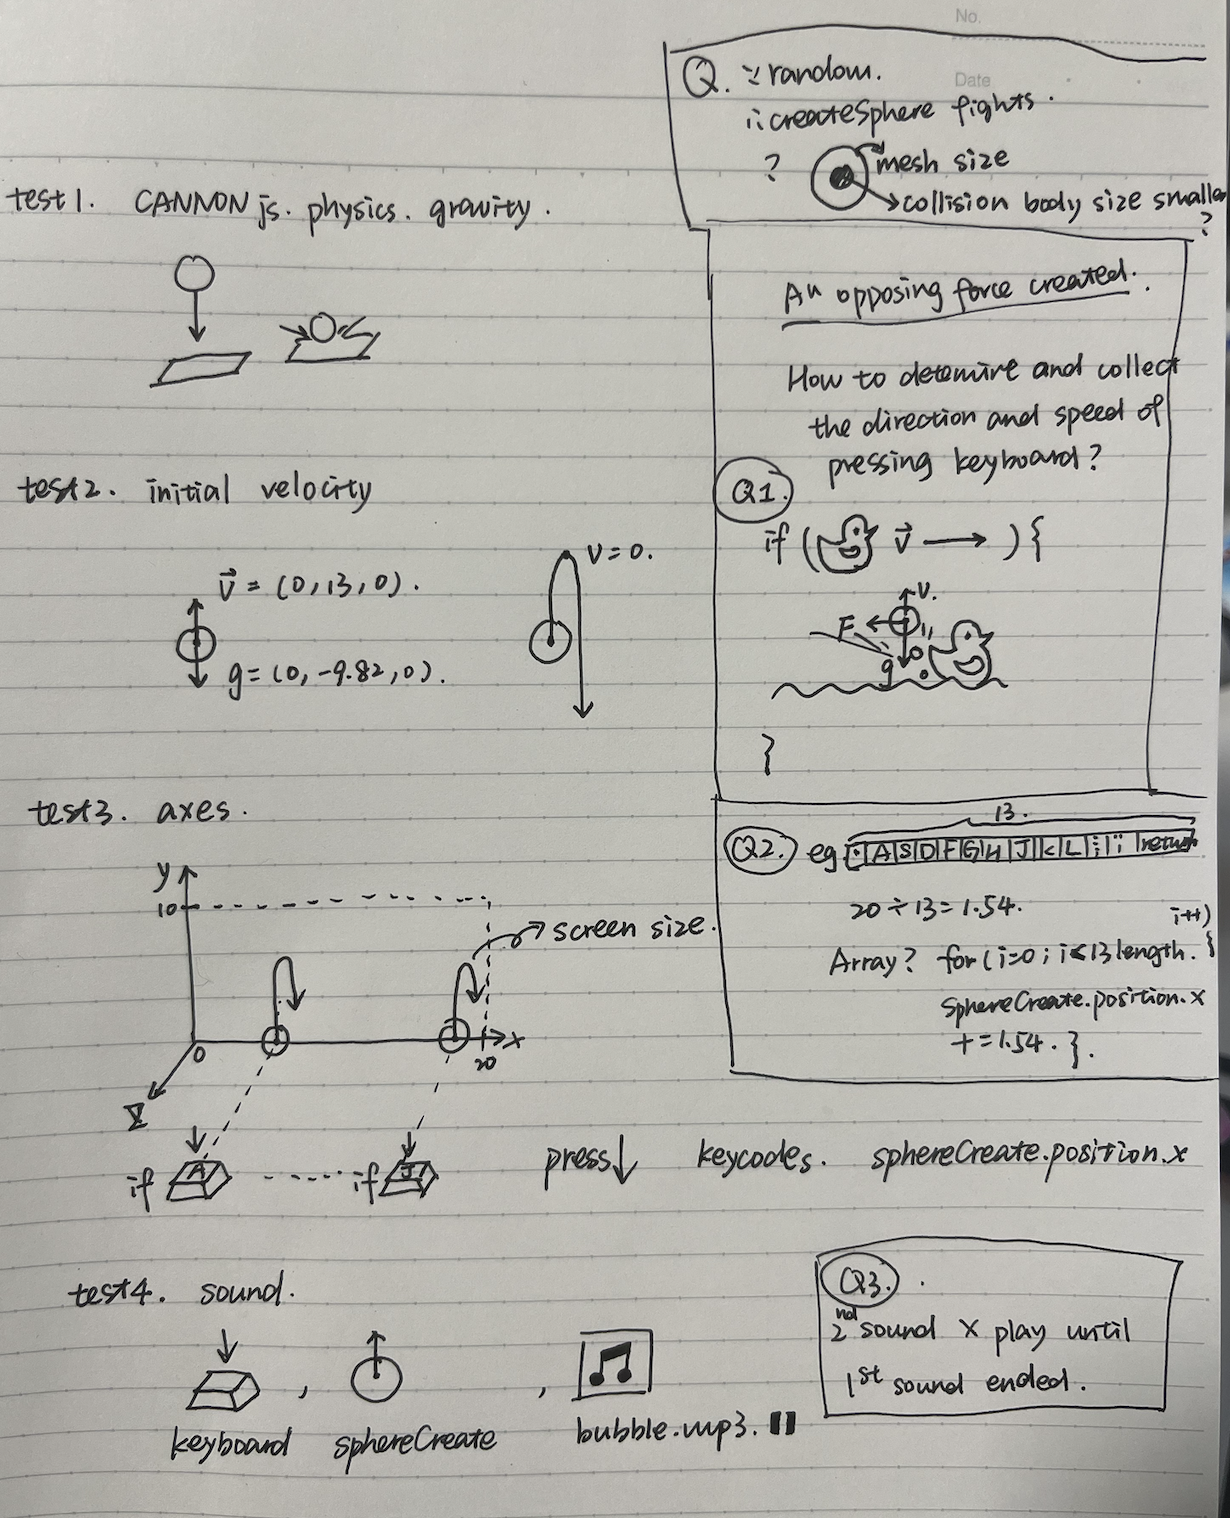 No.
Date
Q. ∵ random.
∴ createSphere fights.
?
mesh size
collision body size smaller
?
test1. CANNON js. physics. gravity.
An opposing force created.
How to detemire and collect
the direction and speed of
pressing keyboard?
Q1.
if ( v → ) {
v.
F
g
}
test2. initial velocity
v = (0, 13, 0).
g = (0, -9.82, 0).
v = 0.
test3. axes.
y
10
screen size.
0
20
x
Z
if A ...... if J
press↓ keycodes. sphereCreate.position.x
Q2. eg
13.
A S D F G H J K L ; " return
20 ÷ 13 = 1.54.
Array? for (i=0; i<13length. i++) {
sphereCreate.position.x
+=1.54. }.
test4. sound.
keyboard , sphereCreate , bubble.mp3.
Q3.
2nd sound X play until
1st sound ended.